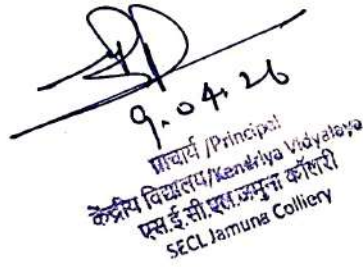 9.04.26
प्राचार्य /Principal
केंद्रीय विद्यालय/Kendriya Vidyalaya
एस.ई.सी.एल.जमुना कॉलरी
SECL Jamuna Colliery